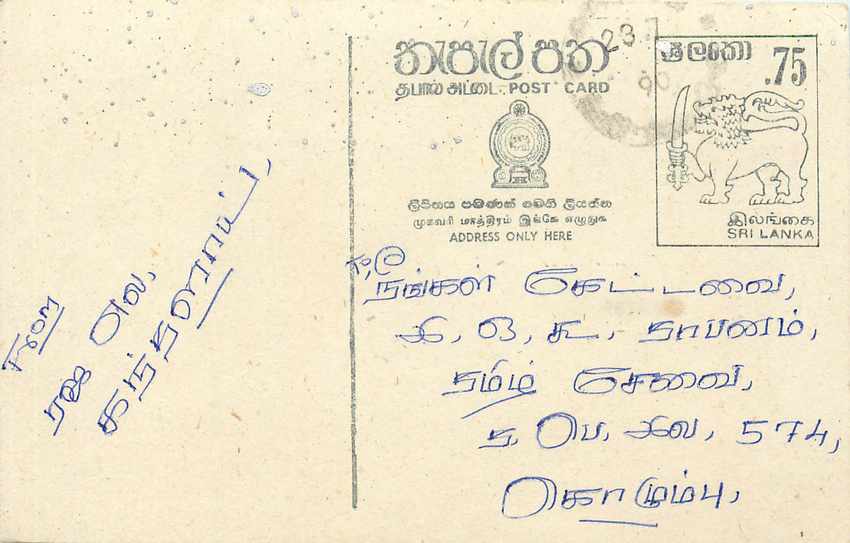 තැපැල් පත
தபால் அட்டை POST CARD
ලිපිනය පමණක් මෙහි ලියන්න
முகவரி மாத்திரம் இங்கே எழுதுக
ADDRESS ONLY HERE
23
90
ශ්‍රී ලංකා
.75
இலங்கை
SRI LANKA
To,
நீங்கள் கேட்டவை,
இ, ஒ, கூ, தாபனம்,
தமிழ் சேவை,
த, பெ, இல, 574,
கொழும்பு,
From